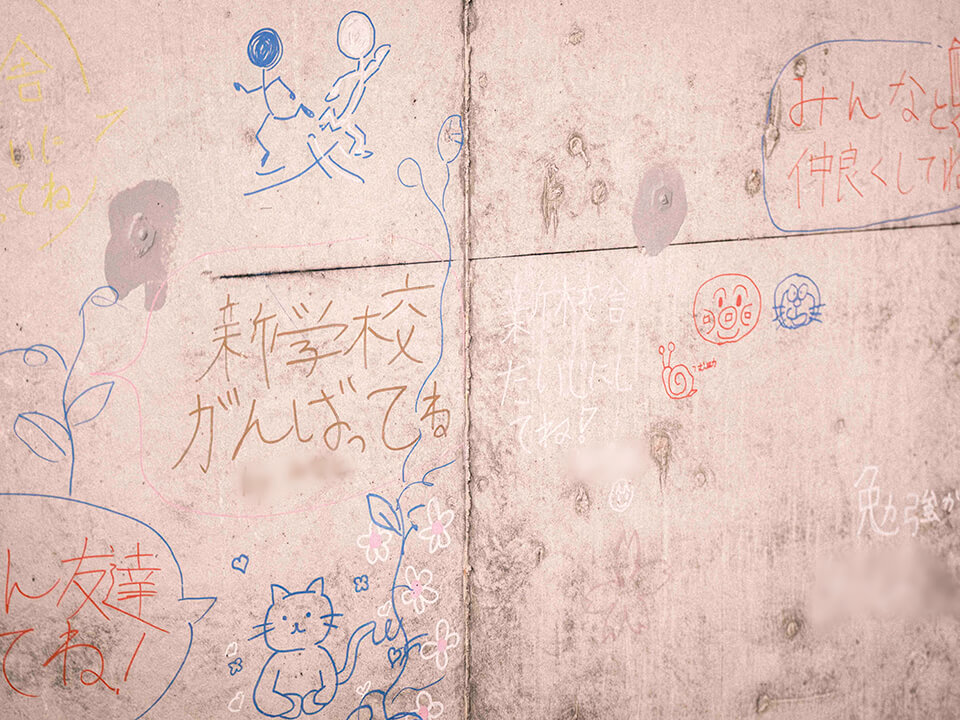 舎
いじ
てね
みんなと
仲良くしてね
新学校
がんばってね
新校舎
だいじにし
てね!
勉強が
ん友達
てね!